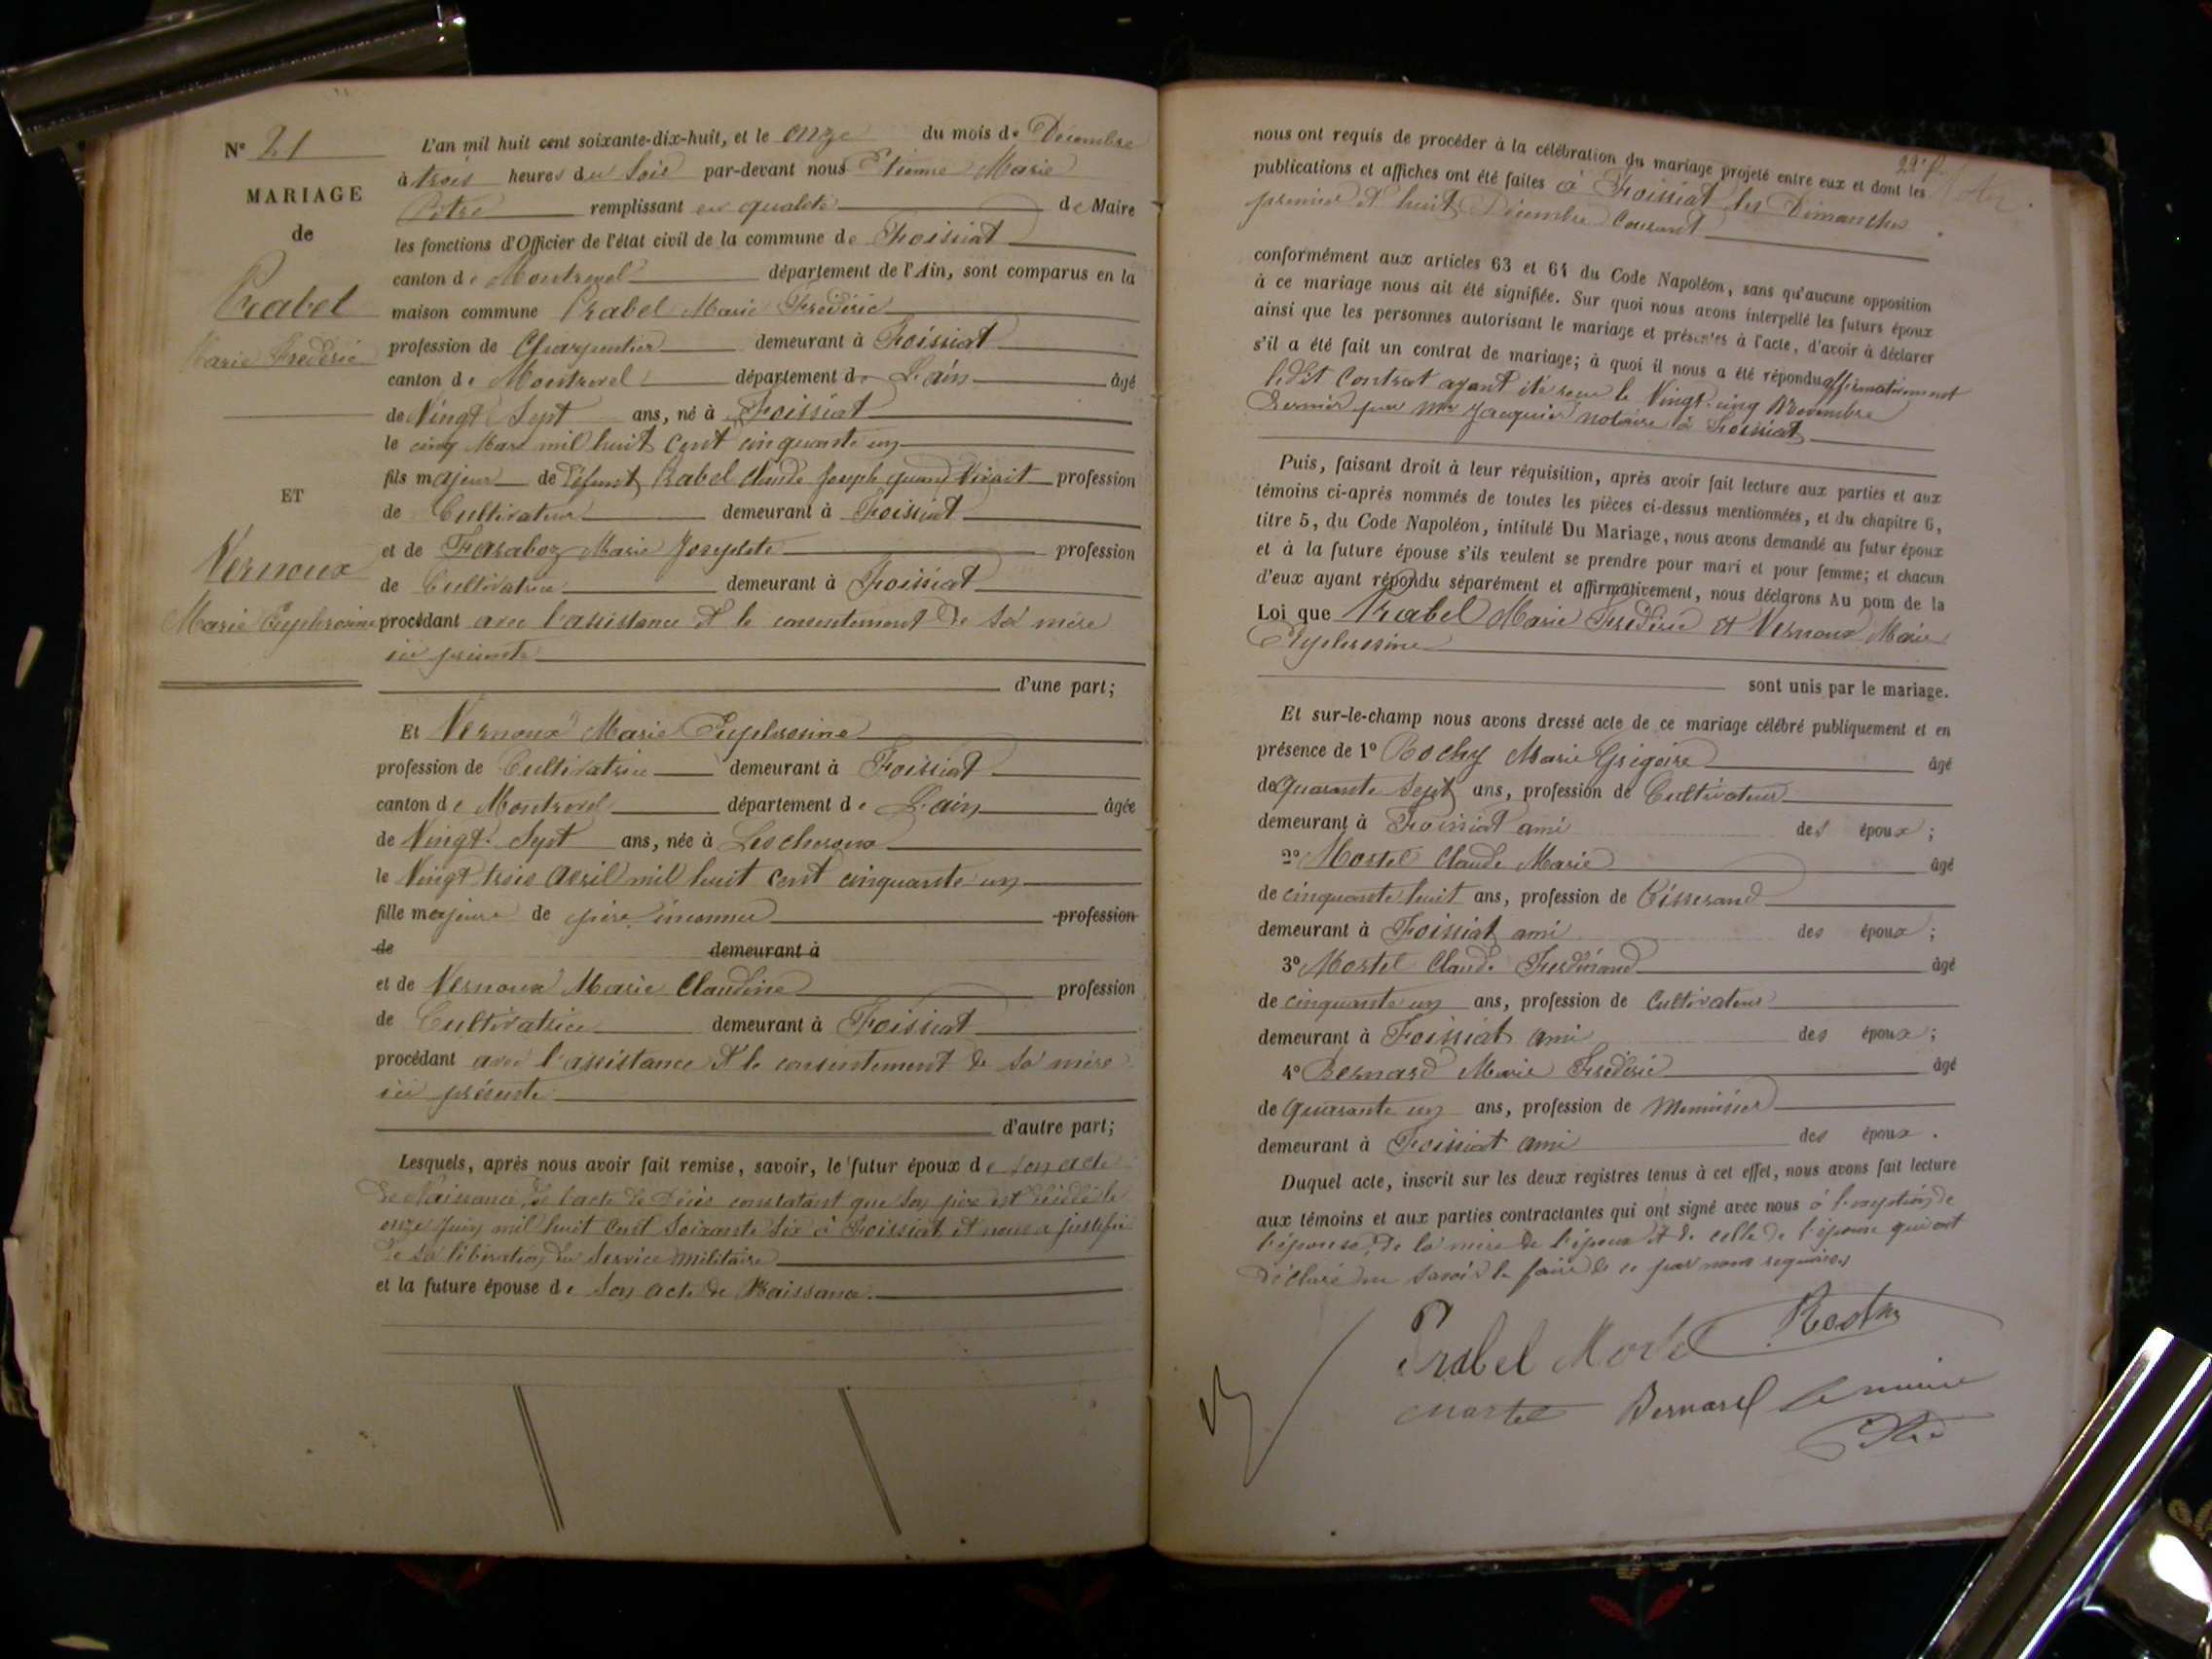 N° 21
MARIAGE
de
Prabel
Marie Frédéric
ET
Vernoux
Marie Euphrosine
L'an mil huit cent soixante-dix-huit, et le onze du mois de Décembre
à trois heures du Soir par-devant nous Etienne Marie
remplissant en qualité de Maire
les fonctions d'Officier de l'état civil de la commune de Foissiat
canton de Montrevel département de l'Ain, sont comparus en la
maison commune Prabel Marie Frédéric
profession de Charpentier demeurant à Foissiat
canton de Montrevel département de L'ain âgé
de Vingt Sept ans, né à Foissiat
le cinq Mars mil huit Cent cinquante un
fils majeur de défunt Prabel Claude Joseph quand Vivait profession
de Cultivateur demeurant à Foissiat
et de Faraboz Marie Josephte profession
de Cultivatrice demeurant à Foissiat
procédant avec l'assistance et le consentement de sa mère
ici présente
d'une part;
Et Vernoux Marie Euphrosine
profession de Cultivatrice demeurant à Foissiat
canton de Montrevel département de L'ain âgée
de Vingt Sept ans, née à Lescheroux
le Vingt trois avril mil huit cent cinquante un
fille majeure de père inconnu profession
de demeurant à
et de Vernoux Marie Claudine profession
de Cultivatrice demeurant à Foissiat
procédant avec l'assistance et le consentement de sa mère
ici présente
d'autre part;
Lesquels, après nous avoir fait remise, savoir, le futur époux de son acte
de Naissance, de l'acte de Décès constatant que son père est décédé le
onze Juin mil huit Cent Soixante Six à Foissiat et nous a justifié
de sa libération du Service Militaire
et la future épouse de son acte de Naissance.
22e f.
nous ont requis de procéder à la célébration du mariage projeté entre eux et dont les
publications et affiches ont été faites à Foissiat les Dimanches
premier et huit Décembre Courant
conformément aux articles 63 et 64 du Code Napoléon, sans qu'aucune opposition
à ce mariage nous ait été signifiée. Sur quoi nous avons interpellé les futurs époux
ainsi que les personnes autorisant le mariage et présentes à l'acte, d'avoir à déclarer
s'il a été fait un contrat de mariage; à quoi il nous a été répondu affirmativement
ledit Contrat ayant été reçu le Vingt-cinq Novembre
Dernier par Me Jacquier notaire à Foissiat
Puis, faisant droit à leur réquisition, après avoir fait lecture aux parties et aux
témoins ci-après nommés de toutes les pièces ci-dessus mentionnées, et du chapitre 6,
titre 5, du Code Napoléon, intitulé Du Mariage, nous avons demandé au futur époux
et à la future épouse s'ils veulent se prendre pour mari et pour femme; et chacun
d'eux ayant répondu séparément et affirmativement, nous déclarons Au nom de la
Loi que Prabel Marie Frédéric et Vernoux Marie
Euphrosine
sont unis par le mariage.
Et sur-le-champ nous avons dressé acte de ce mariage célébré publiquement et en
présence de 1° Rochy Marie Grégoire âgé
de Quarante Sept ans, profession de Cultivateur
demeurant à Foissiat ami des époux;
2° Mortel Claude Marie âgé
de cinquante huit ans, profession de Tisserand
demeurant à Foissiat ami des époux;
3° Mortel Claude Ferdinand âgé
de cinquante un ans, profession de Cultivateur
demeurant à Foissiat ami des époux;
4° Bernard Marie Frédéric âgé
de Quarante un ans, profession de Menuisier
demeurant à Foissiat ami des époux.
Duquel acte, inscrit sur les deux registres tenus à cet effet, nous avons fait lecture
aux témoins et aux parties contractantes qui ont signé avec nous à l'exception de
l'épouse, de la mère de l'époux et de celle de l'épouse qui ont
Déclaré ne Savoir le faire de ce par nous requises
Prabel Mortel
Mortel Bernard le maire